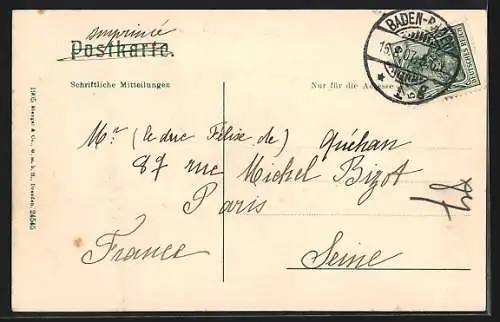 imprimée
Postkarte.
BADEN-BADEN
DEUTSCHES REICH
Schriftliche Mitteilungen
Nur für die Adresse
Mr (le duc Félix de) Quéhan
87 rue Michel Bizot
Paris
France
Seine
1905 Stengel & Co., G. m. b. H., Dresden. 24545